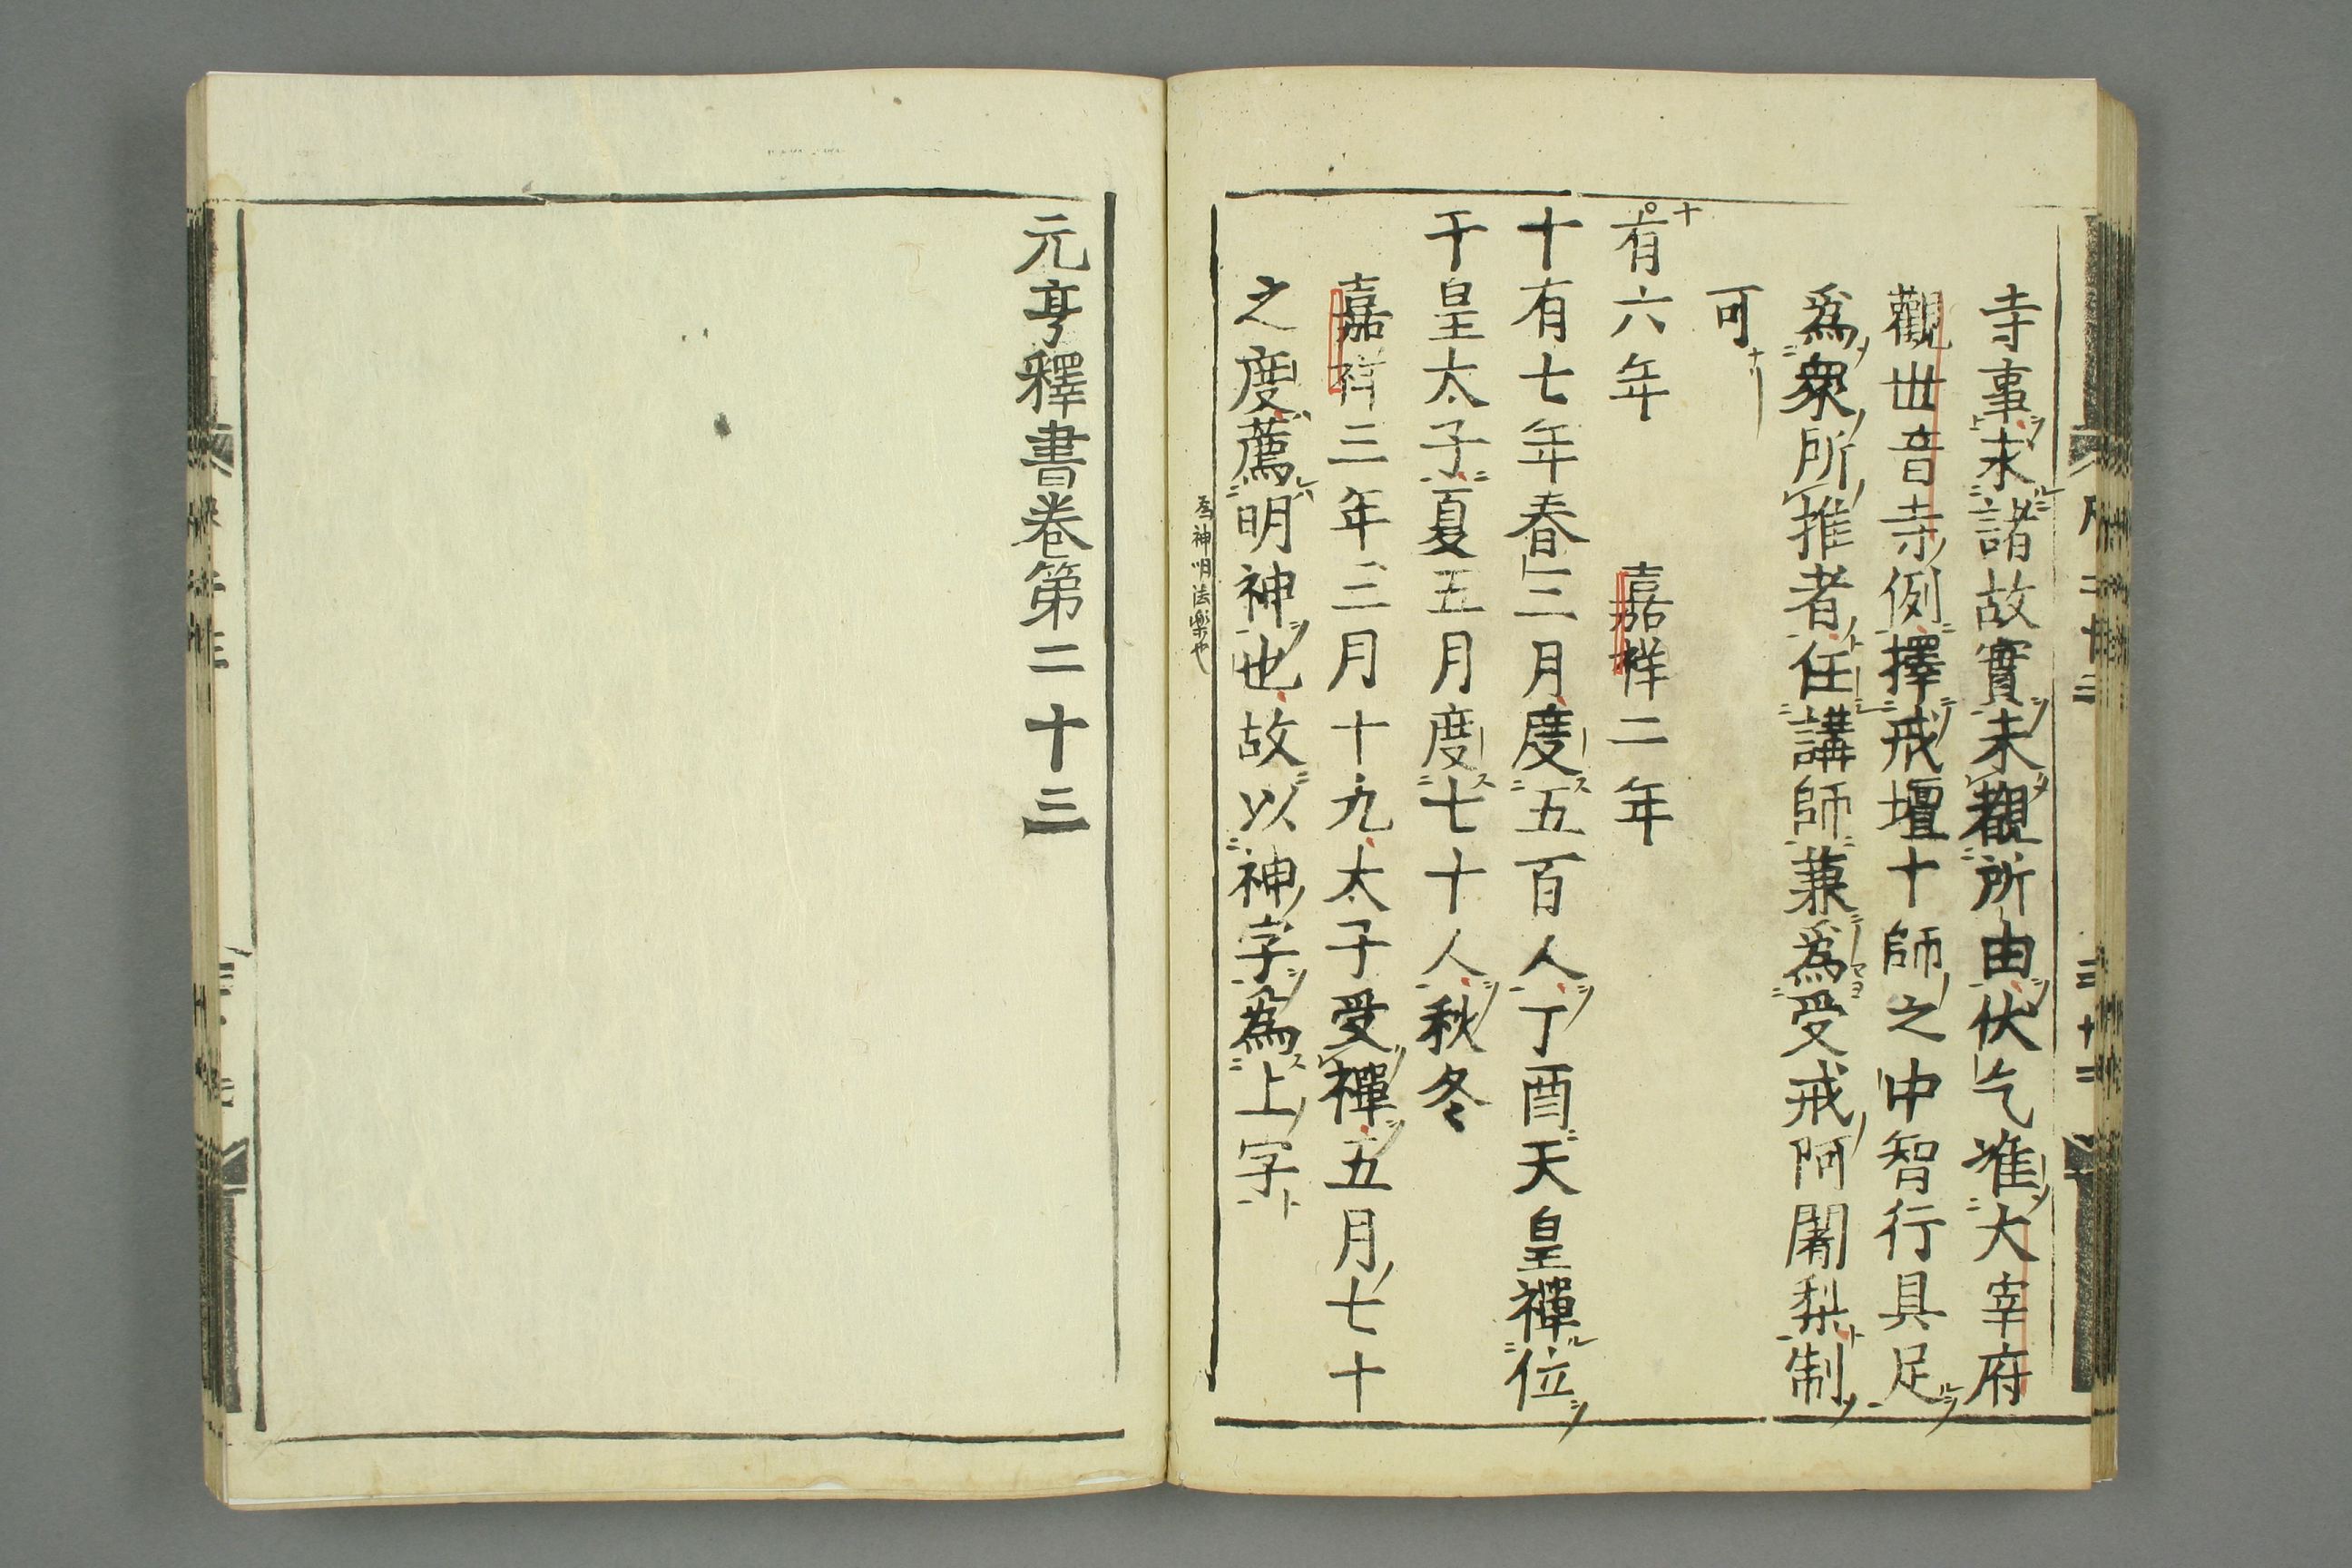 寺事求諸故實未覩所由伏乞准大宰府
觀世音寺例擇戒壇十師之中智行具足
爲衆所推者任講師兼爲受戒阿闍梨制
可
十有六年 嘉祥二年
十有七年春三月度五百人丁酉天皇禪位
于皇太子夏五月度七十人秋冬
嘉祥三年三月十九太子受禪五月七十
之度薦明神也故以神字為上字
為神明法楽也
元亨釋書卷第二十三